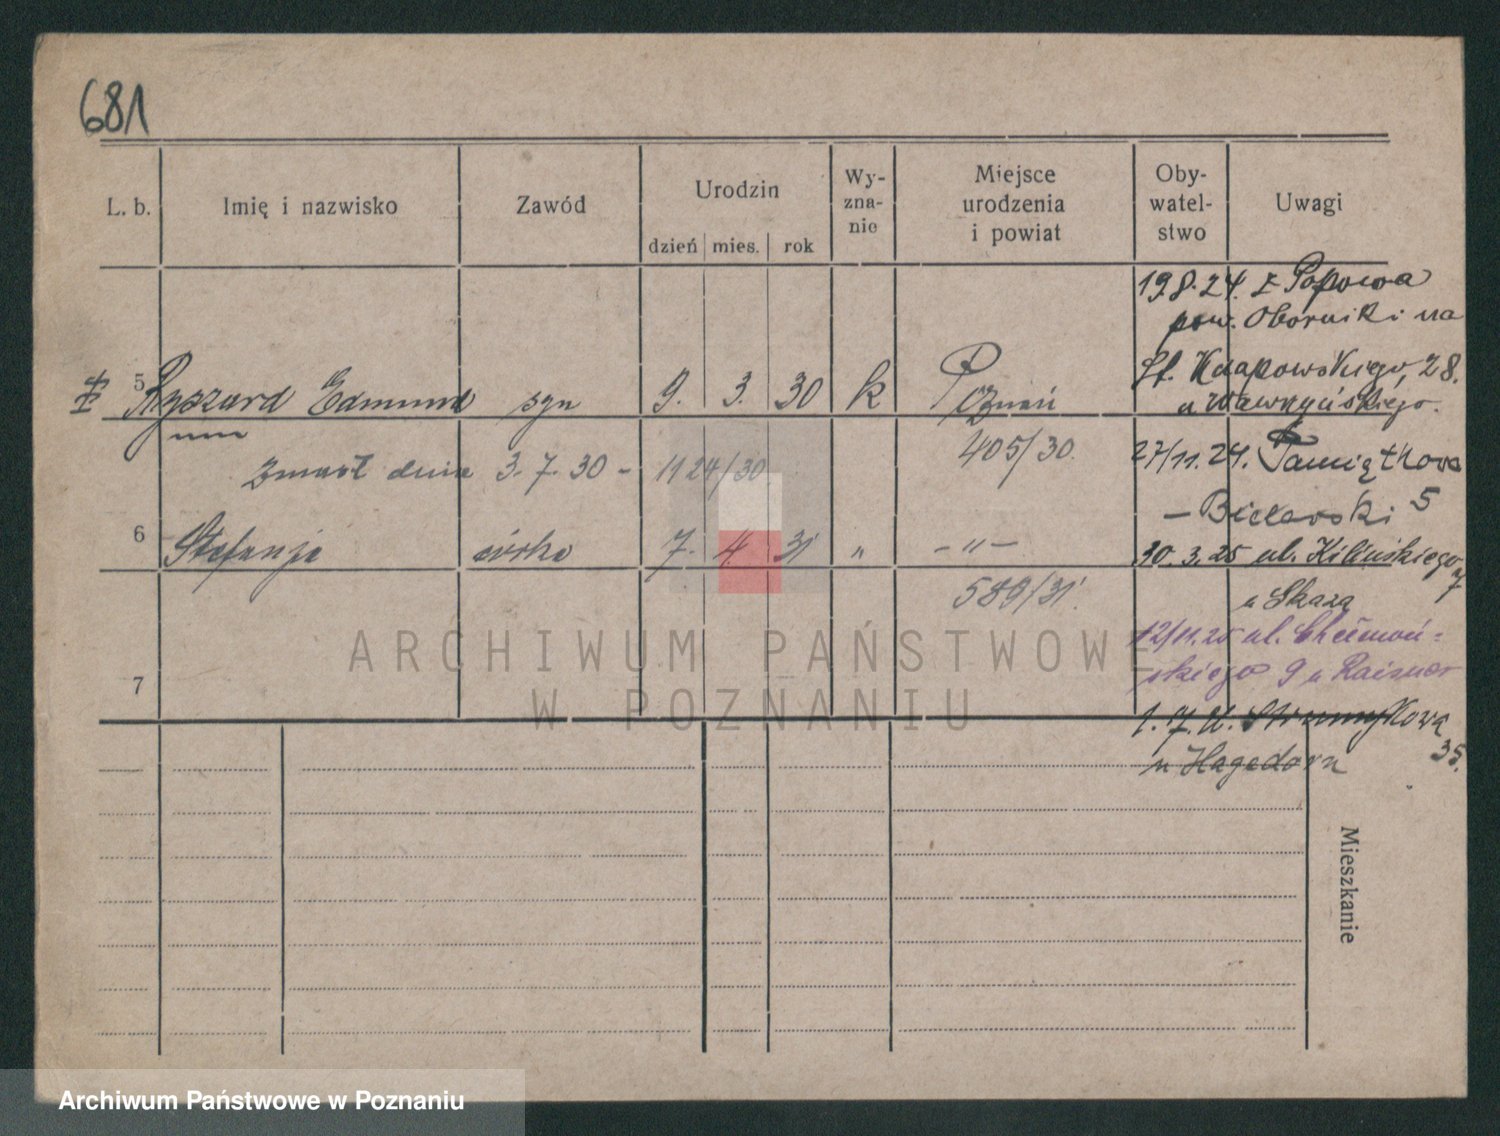 681
L. b.
Imię i nazwisko
Zawód
Urodzin
dzień mies. rok
Wy-
zna-
nie
Miejsce
urodzenia
i powiat
Oby-
watel-
stwo
Uwagi
5 Ryszard Edmund syn 9. 3. 30 k Poznań
405/30.
zmarł dnia 3.7.30 - 1124/30
6 Stefanja córka 7. 4. 31 „ -„-
589/31.
7
19.8.24. z Popowa
pow. Oborniki na
Sł. Knapowskiego, 28.
u Wawrzyńskiego.
27/11.24. Pamiątkowa
- Bielawski 5
30.3.25 ul. Kilińskiego 7
u Skaza
12/11.25 ul. Chełmoń-
skiego 9 u Raisner
1.7. Strumykowa
u Hagedorn 35.
Mieszkanie
ARCHIWUM PAŃSTWOWE
W POZNANIU
Archiwum Państwowe w Poznaniu